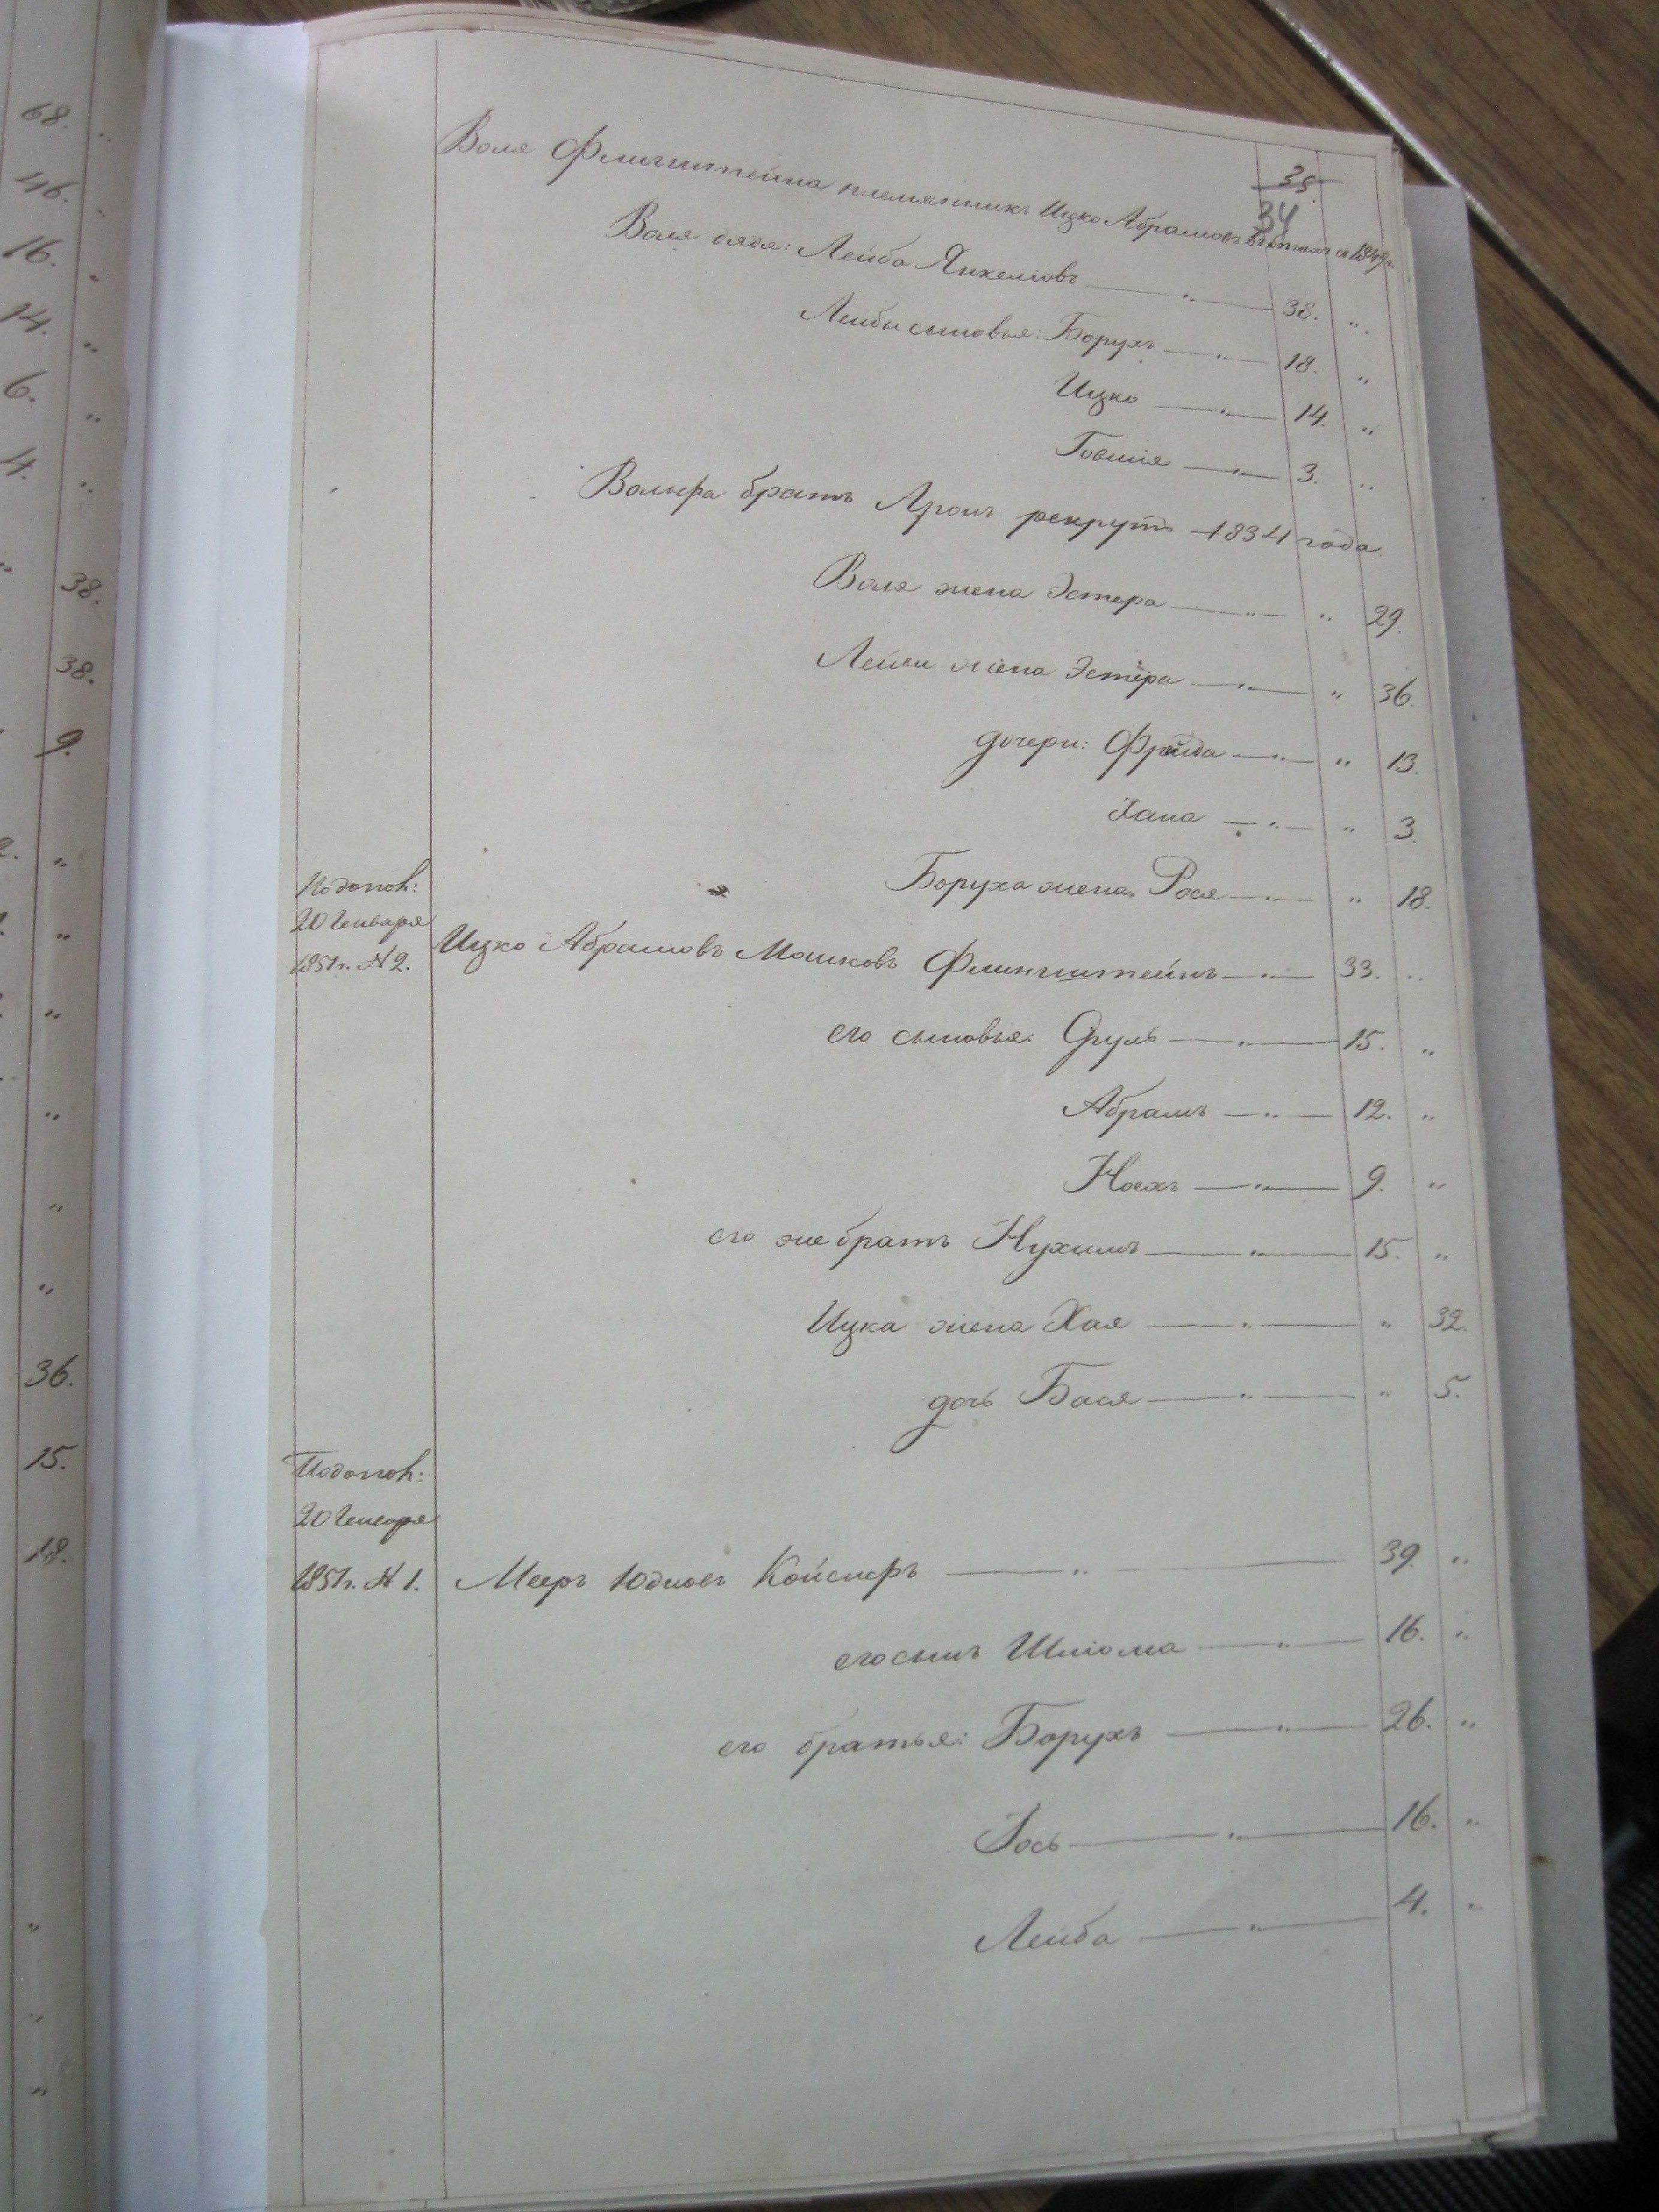 68. „
46. „
16. „
14. „
6. „
4. „
„ 38.
38.
9.
„
„
„
„
„
„
36.
15.
18.
„
„
„
35
34
Воля Флигштейна племянникъ Ицко Абрамовъ въ бегахъ съ 1849 г.
Воля дядя: Лейба Янкеліовъ — „ — 38. „
Лейбы сыновья: Борухъ — „ — 18. „
Ицко — „ — 14. „
Говшія — „ — 3. „
Вольфа братъ Аронъ рекрутъ 1834 года
Воля жена Эстера — „ — „ 29.
Лейби жена Эстера — „ — „ 36.
дочери: Фрейда — „ — „ 13.
Хана — „ — „ 3.
Боруха жена Рося — „ — „ 18.
Подопол:
20 Генваря
1851 г. № 2. Ицко Абрамовъ Мошковъ Флингштейнъ — „ — 33. „
его сыновья: Сруль — „ — 15. „
Абрамъ — „ — 12. „
Ноехъ — „ — 9. „
его же братъ Нухимъ — „ — 15. „
Ицка жена Хая — „ — „ 32.
дочь Бася — „ — „ 5.
Подопол:
20 Генваря
1851 г. № 1. Мееръ Юдковъ — „ — 39. „
его сынъ Шліома — „ — 16. „
его братья: Борухъ — „ — 26. „
Іось — „ — 16. „
Лейба — „ — 4. „